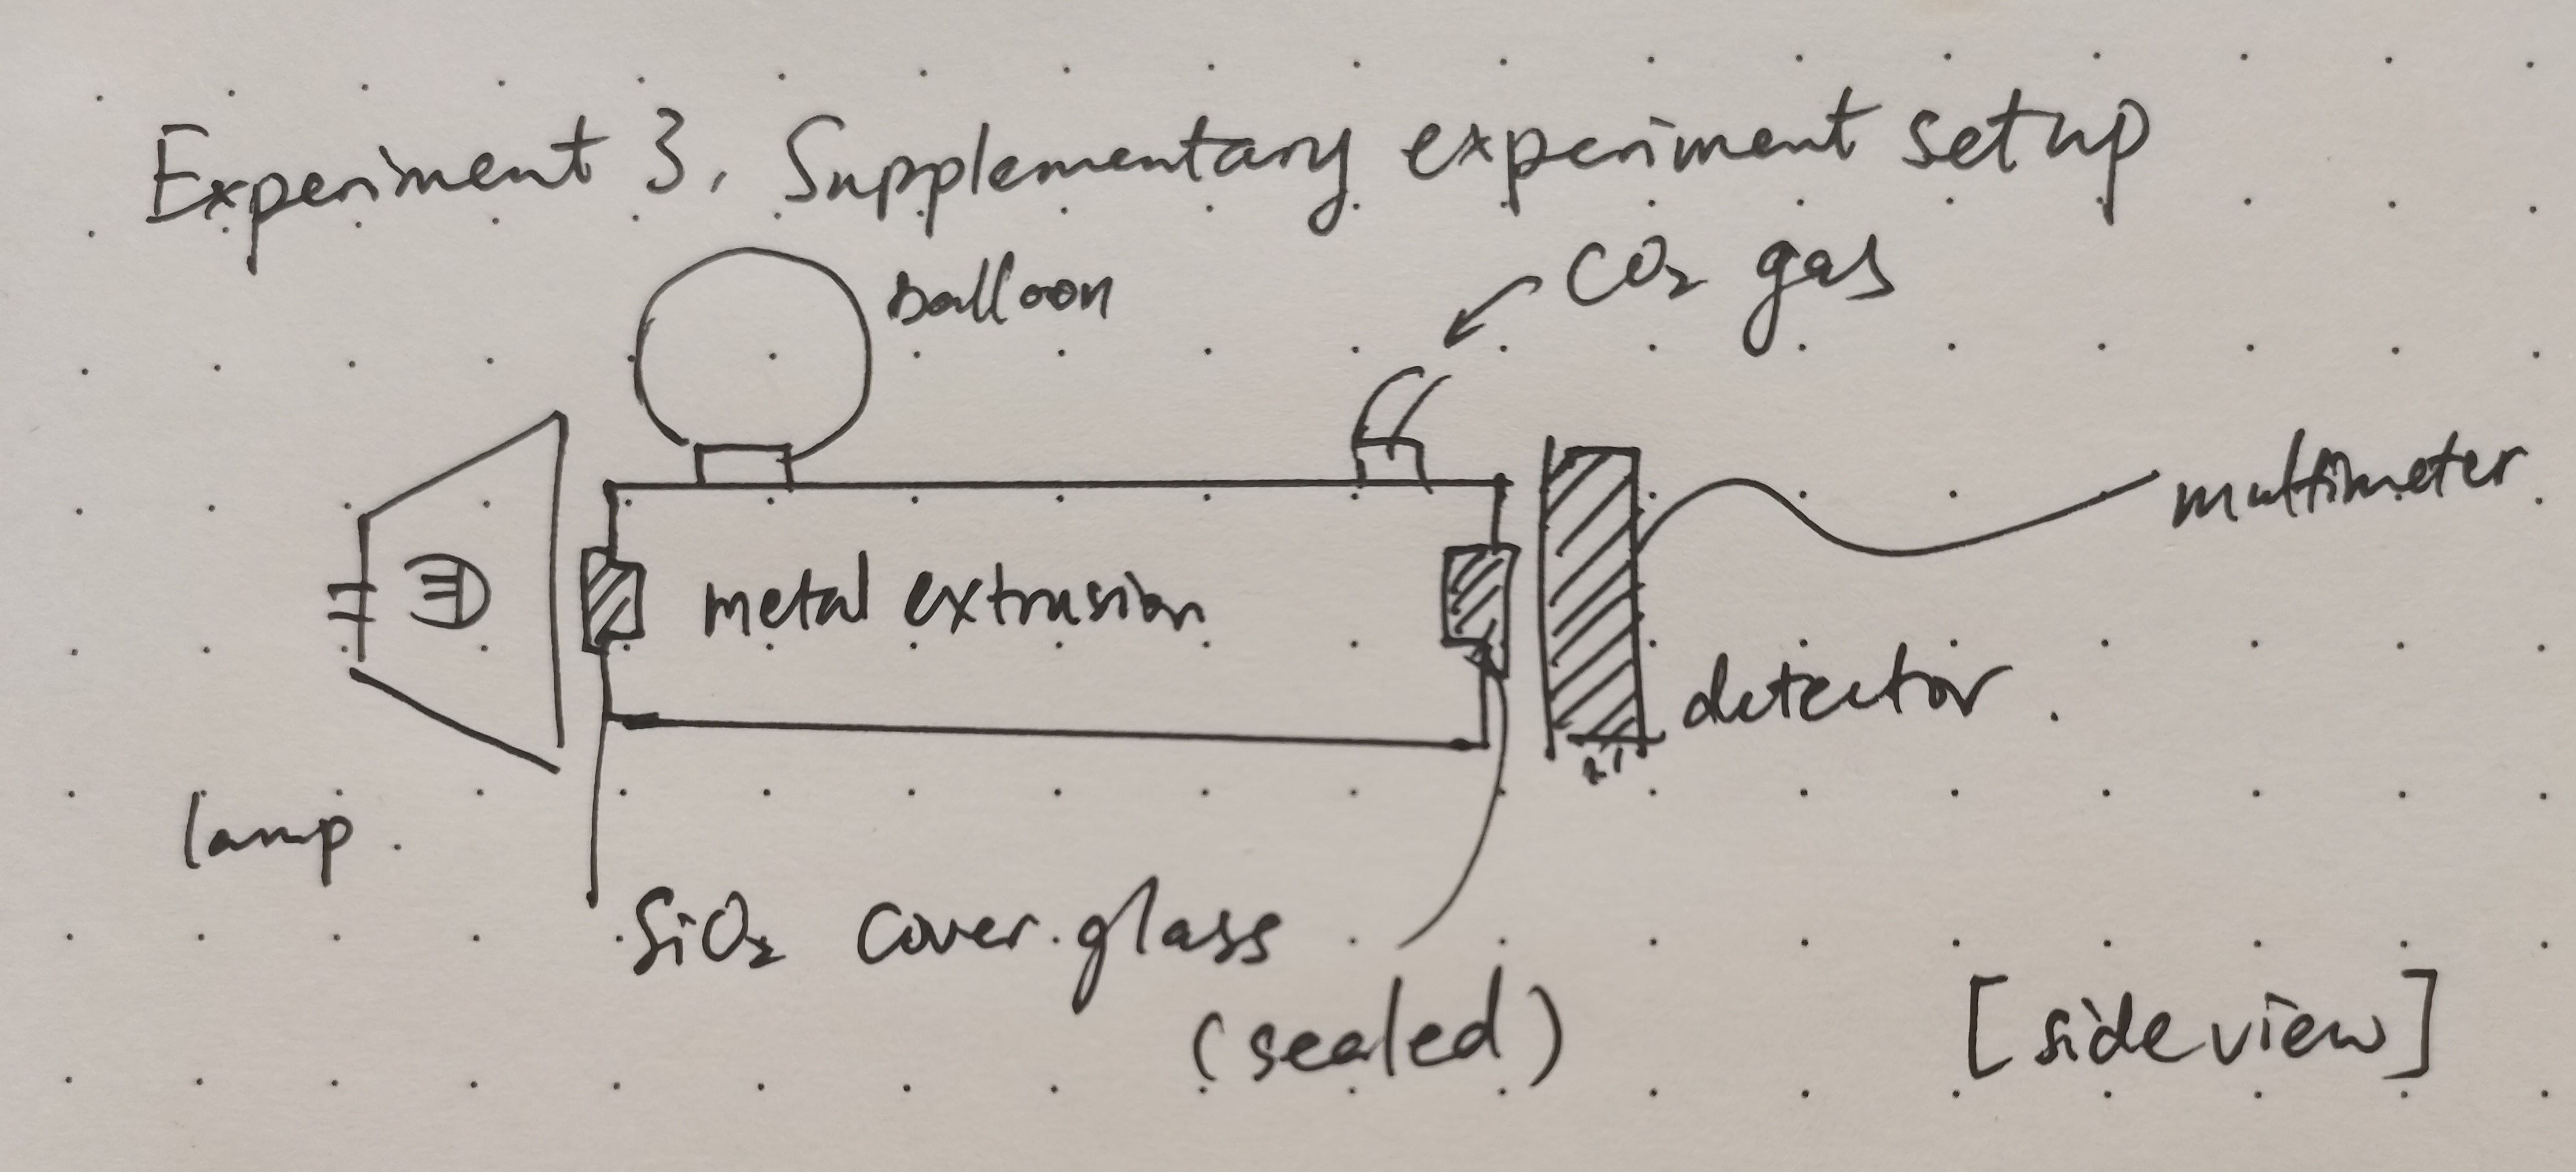 Experiment 3, Supplementary experiment setup
balloon
CO₂ gas
multimeter.
metal extrusion
detector.
lamp.
SiO₂ cover glass
(sealed)
[side view]